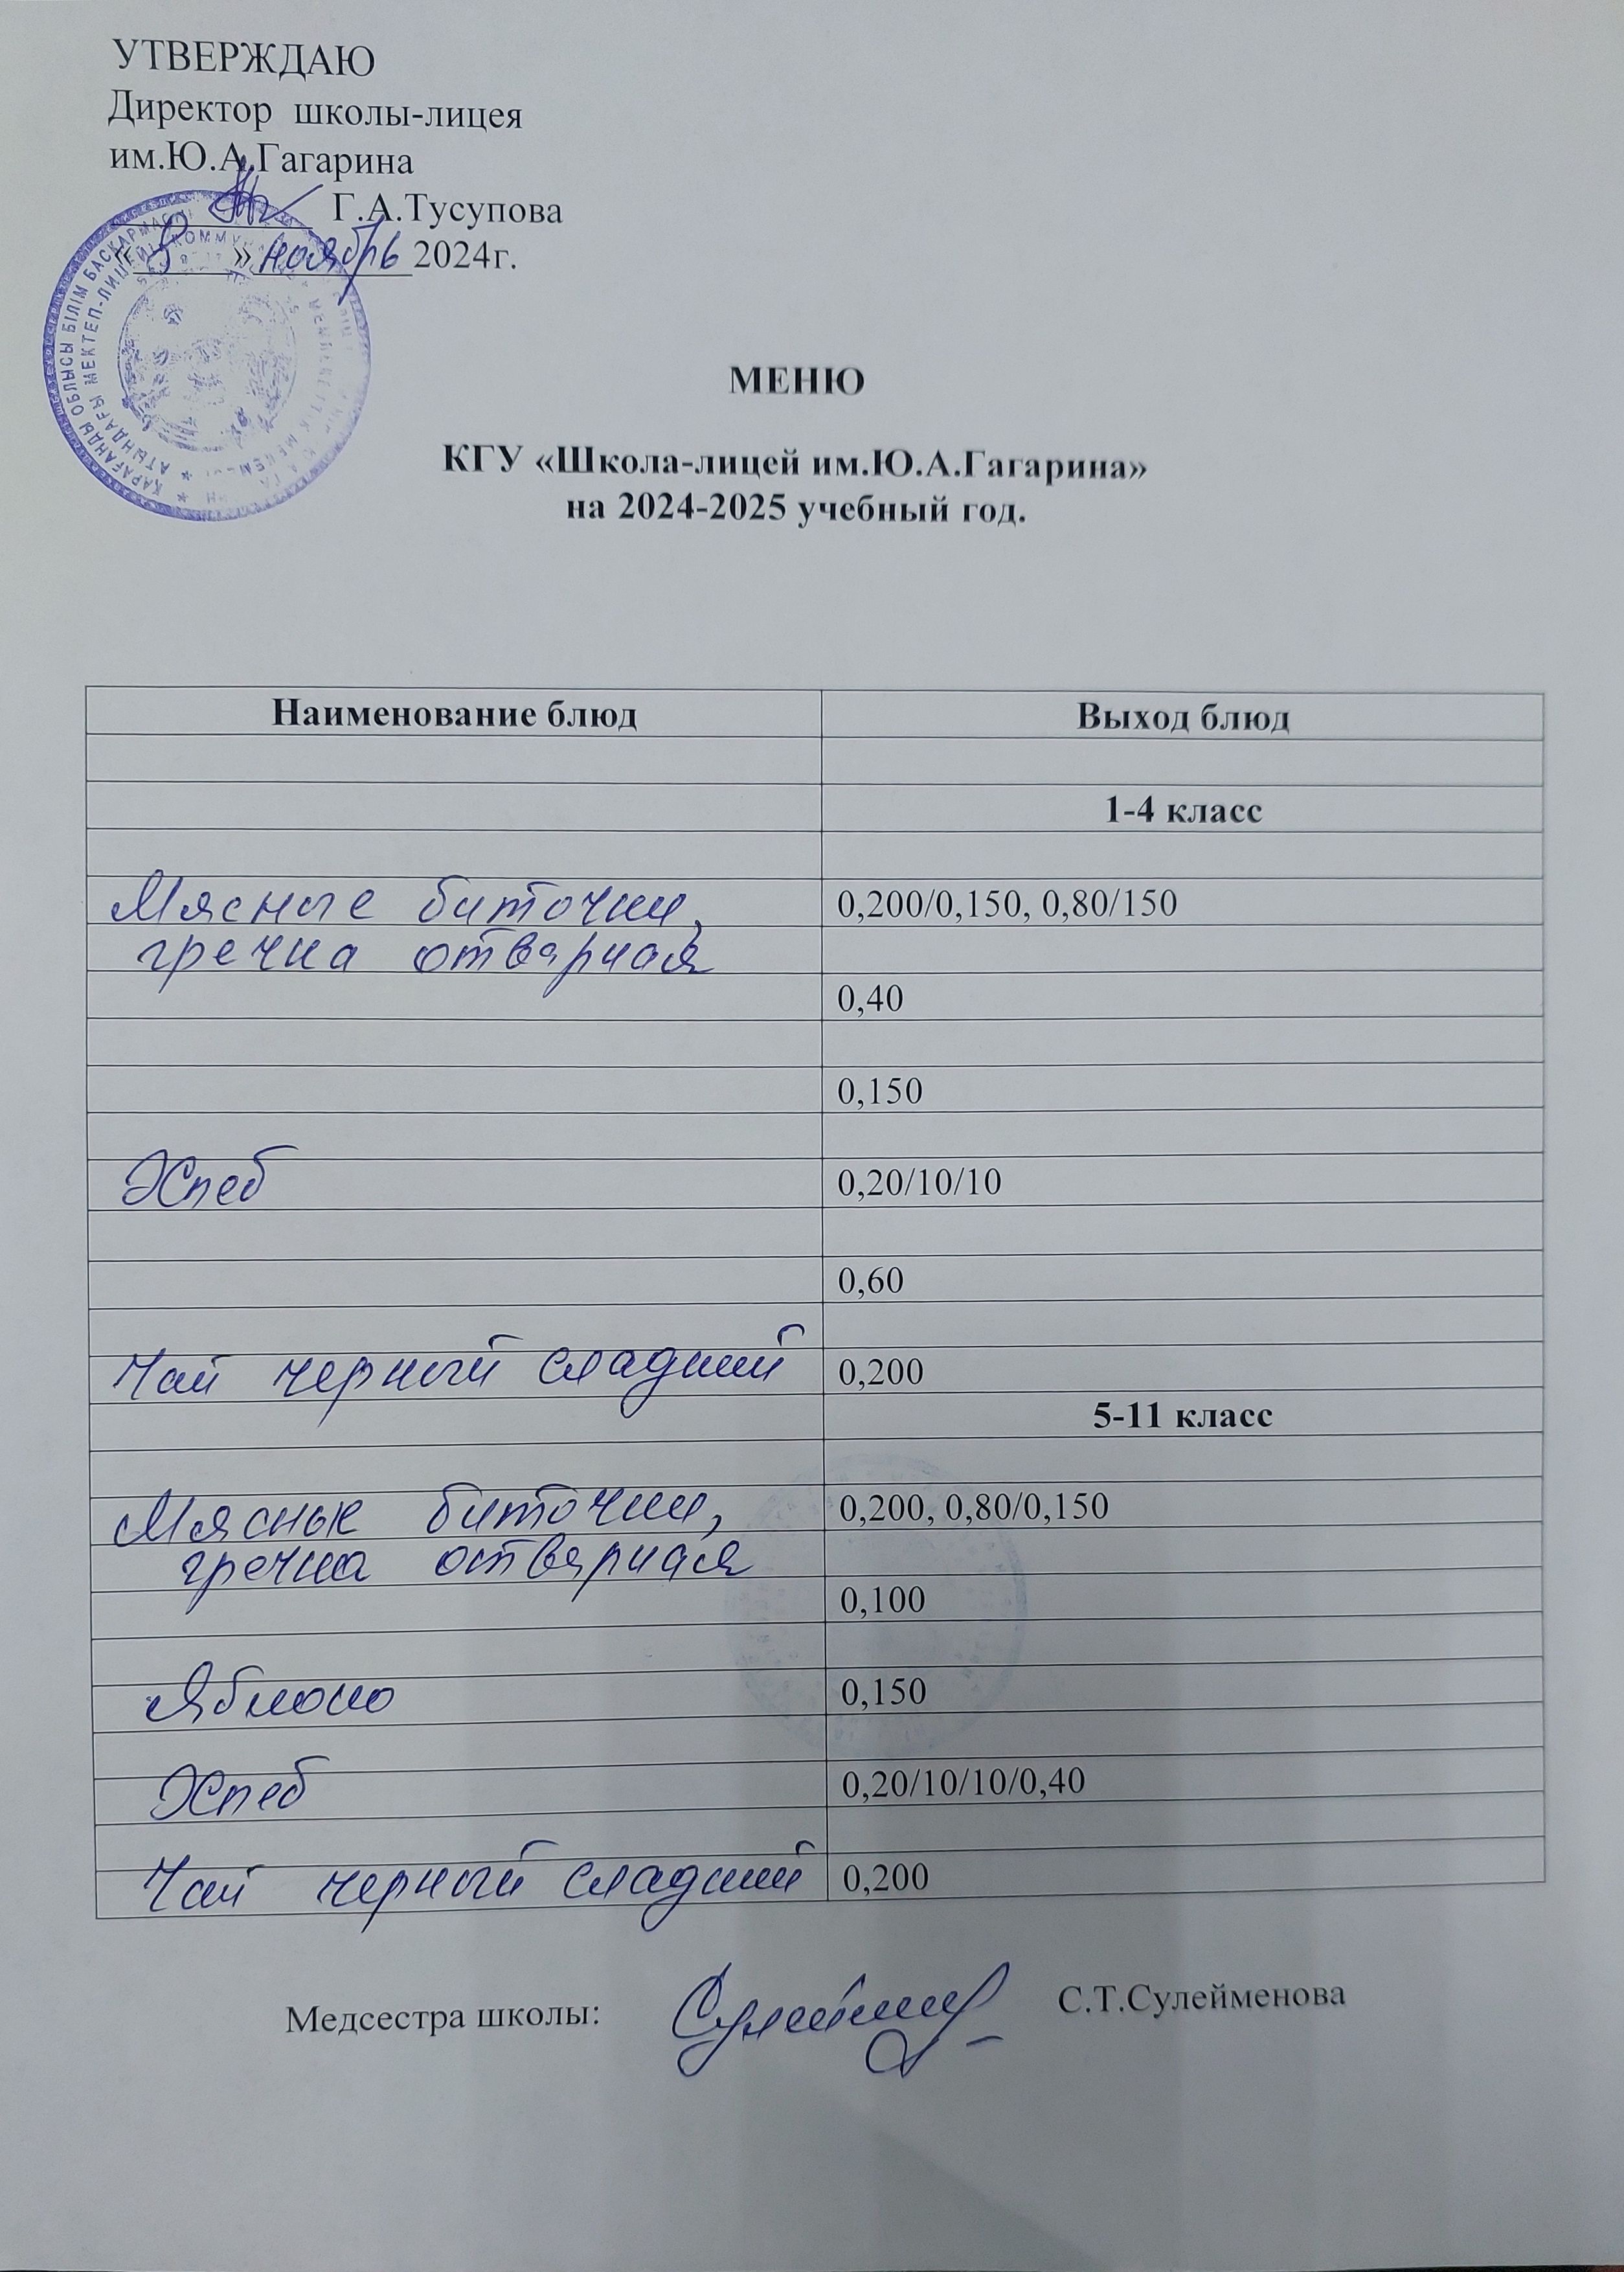 УТВЕРЖДАЮ
Директор школы-лицея
им.Ю.А.Гагарина
Г.А.Тусупова
« » ноябрь 2024г.
ҚАРАҒАНДЫ ОБЛЫСЫ БІЛІМ БАСҚАРМАСЫ
АТЫНДАҒЫ МЕКТЕП-ЛИЦЕЙІ КОММУ
МЕНЮ
КГУ «Школа-лицей им.Ю.А.Гагарина»
на 2024-2025 учебный год.
Наименование блюд Выход блюд
1-4 класс
Мясные биточки, 0,200/0,150, 0,80/150
гречка отварная
0,40
0,150
Хлеб 0,20/10/10
0,60
Чай черный сладкий 0,200
5-11 класс
Мясные биточки, 0,200, 0,80/0,150
гречка отварная
0,100
Яблоко 0,150
Хлеб 0,20/10/10/0,40
Чай черный сладкий 0,200
Медсестра школы: С.Т.Сулейменова